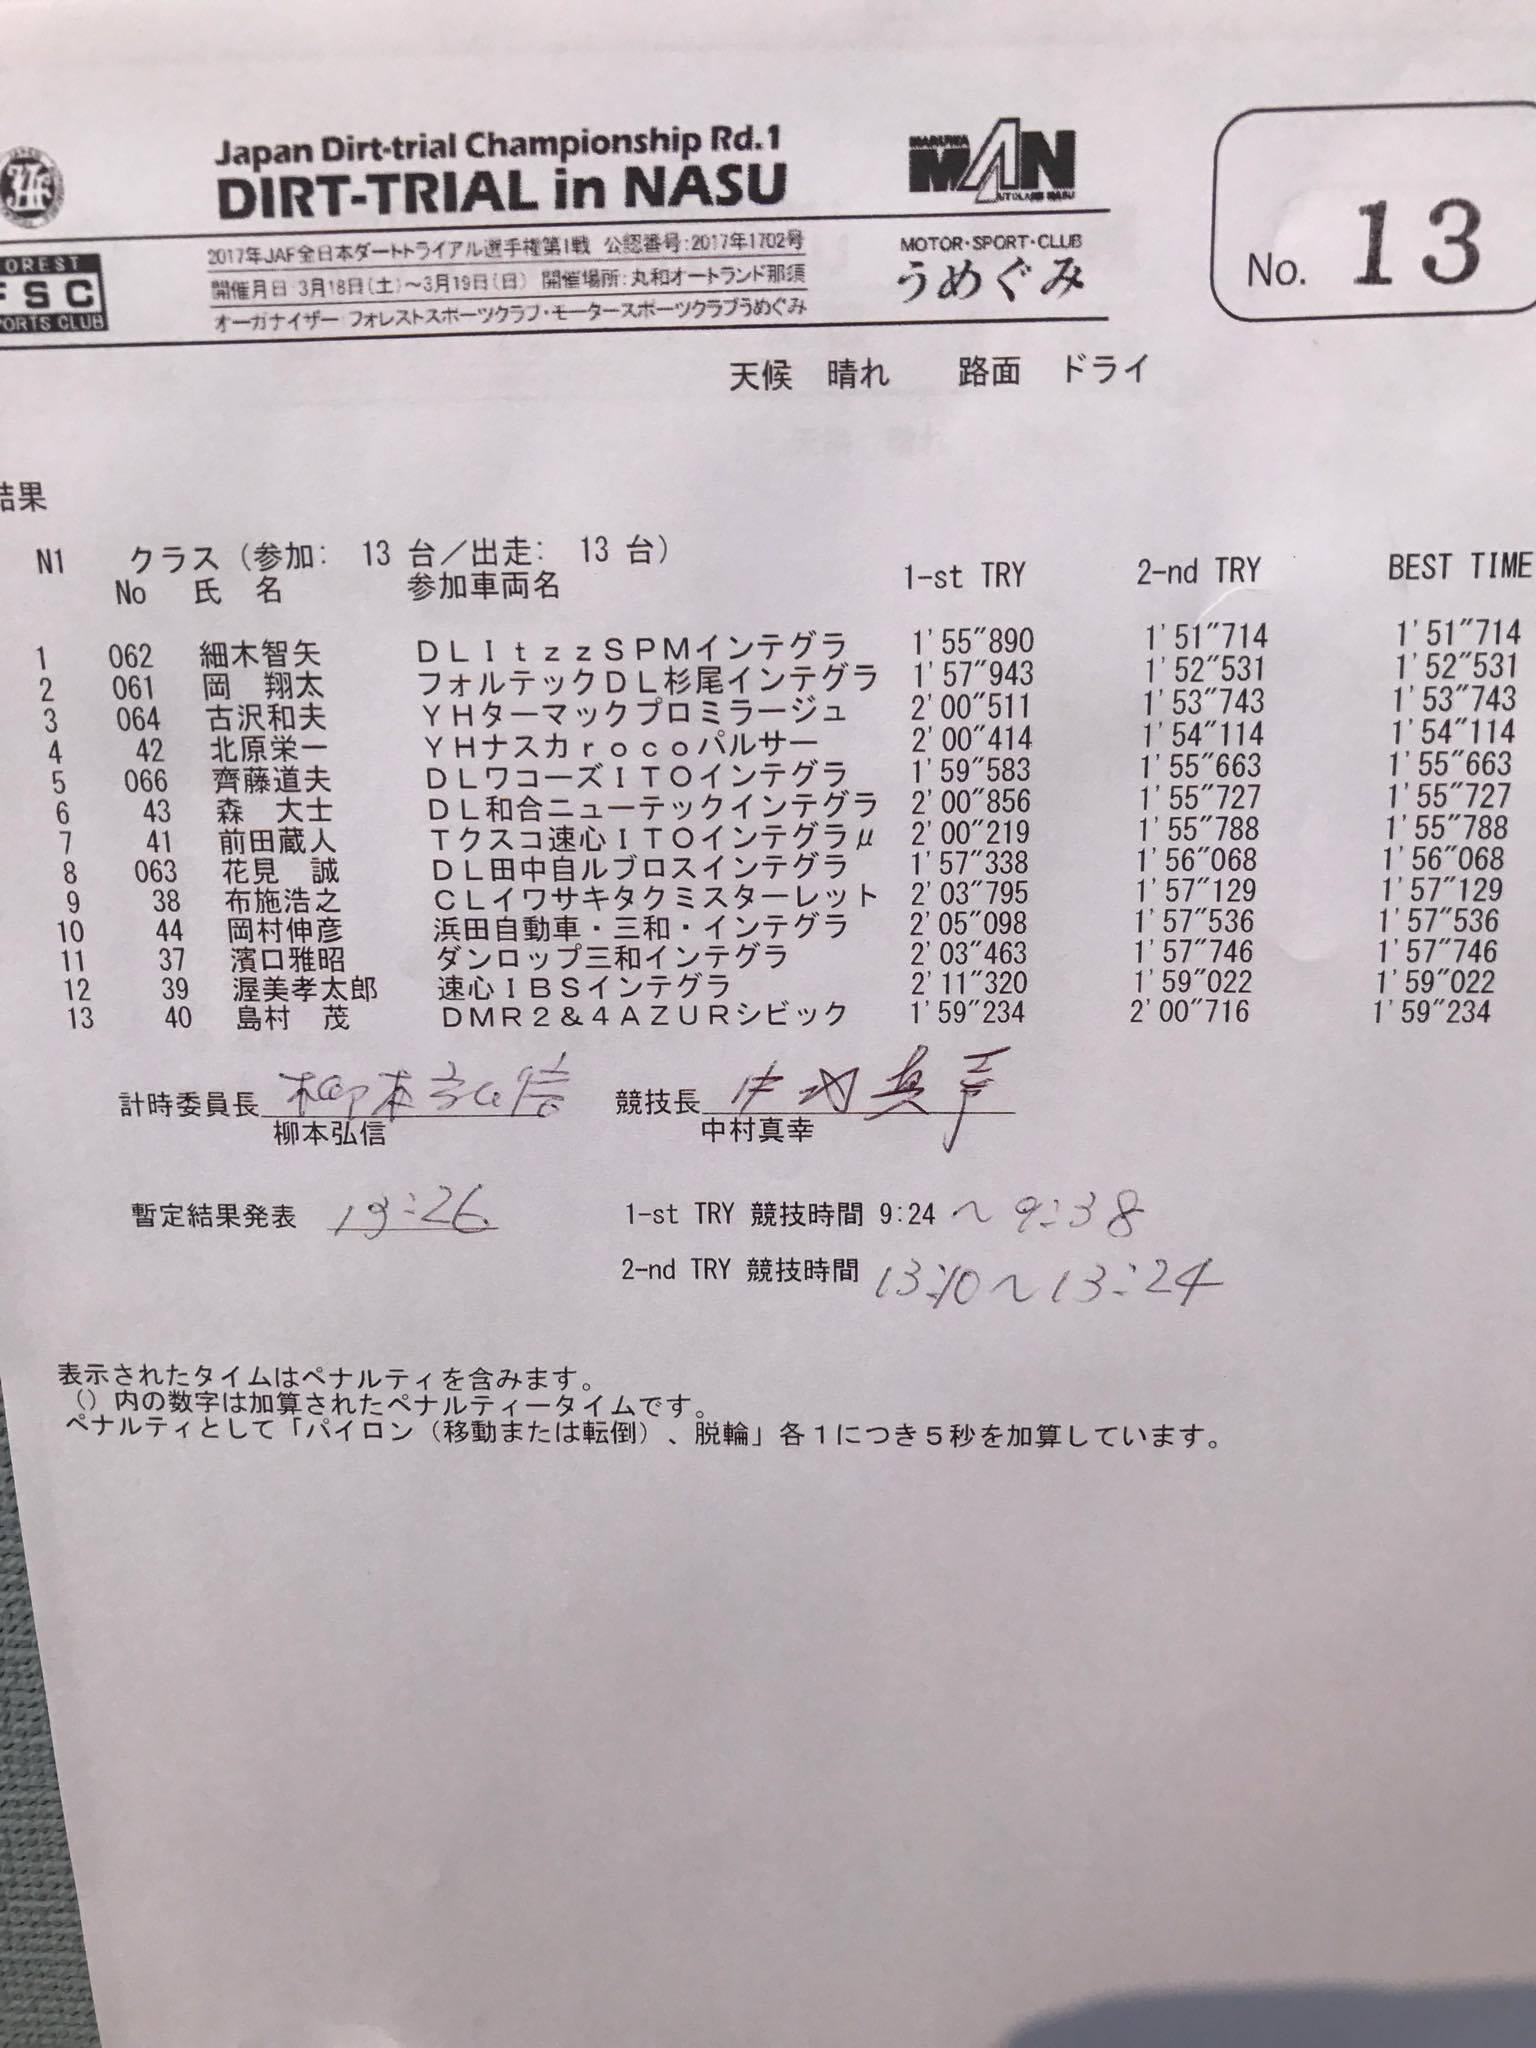 Japan Dirt-trial Championship Rd.1
DIRT-TRIAL in NASU
MAN
AUTOLAND NASU
No. 13
2017年JAF全日本ダートトライアル選手権第1戦 公認番号:2017年1702号
開催月日:3月18日(土)～3月19日(日) 開催場所:丸和オートランド那須
オーガナイザー フォレストスポーツクラブ・モータースポーツクラブうめぐみ
MOTOR・SPORT・CLUB
うめぐみ
OREST
FSC
PORTS CLUB
天候 晴れ 路面 ドライ
結果
N1 クラス (参加: 13 台／出走: 13 台)
No 氏 名 参加車両名 1-st TRY 2-nd TRY BEST TIME
1 062 細木智矢 ＤＬＩｔｚｚＳＰＭインテグラ 1'55"890 1'51"714 1'51"714
2 061 岡　翔太 フォルテックＤＬ杉尾インテグラ 1'57"943 1'52"531 1'52"531
3 064 古沢和夫 ＹＨターマックプロミラージュ 2'00"511 1'53"743 1'53"743
4 42 北原栄一 ＹＨナスカｒｏｃｏパルサー 2'00"414 1'54"114 1'54"114
5 066 齊藤道夫 ＤＬワコーズＩＴＯインテグラ 1'59"583 1'55"663 1'55"663
6 43 森　大士 ＤＬ和合ニューテックインテグラ 2'00"856 1'55"727 1'55"727
7 41 前田蔵人 Ｔクスコ速心ＩＴＯインテグラμ 2'00"219 1'55"788 1'55"788
8 063 花見　誠 ＤＬ田中自ルブロスインテグラ 1'57"338 1'56"068 1'56"068
9 38 布施浩之 ＣＬイワサキタクミスターレット 2'03"795 1'57"129 1'57"129
10 44 岡村伸彦 浜田自動車・三和・インテグラ 2'05"098 1'57"536 1'57"536
11 37 濱口雅昭 ダンロップ三和インテグラ 2'03"463 1'57"746 1'57"746
12 39 渥美孝太郎 速心ＩＢＳインテグラ 2'11"320 1'59"022 1'59"022
13 40 島村　茂 ＤＭＲ２＆４ＡＺＵＲシビック 1'59"234 2'00"716 1'59"234
計時委員長 柳本弘信 競技長 中村真幸
柳本弘信 中村真幸
暫定結果発表 13:26 1-st TRY 競技時間 9:24 ～ 9:38
2-nd TRY 競技時間 13:10～13:24
表示されたタイムはペナルティを含みます。
（）内の数字は加算されたペナルティータイムです。
ペナルティとして「パイロン（移動または転倒）、脱輪」各１につき５秒を加算しています。